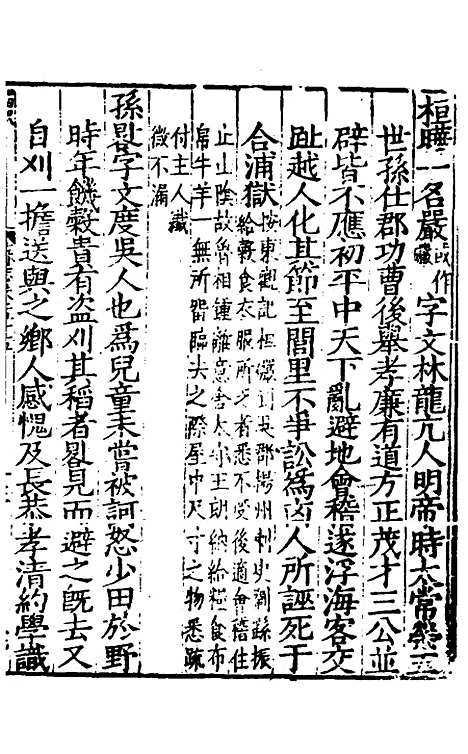 桓曄一名嚴一作礹字文林龍亢人明帝時太常榮五
世孫仕郡功曹後舉孝廉有道方正茂才三公並
辟皆不應初平中天下亂避地會稽遂浮海客交
趾越人化其節至閭里不爭訟爲凶人所誣死于
合浦獄按東觀記桓礹到吳郡揚州刺史劉繇振
給穀食衣服所乏者悉不受後適會稽住
止山陰故魯相鍾離意舍太守王朗餉給糧食布
帛牛羊一無所畱臨去之際屋中尺寸之物悉疏
付主人纖
微不漏
孫晷字文度吳人也爲兒童未嘗被訶怒少田於野
時年饑穀貴有盗刈其稻者晷見而避之旣去又
自刈一擔送與之鄉人感愧及長恭孝清約學識